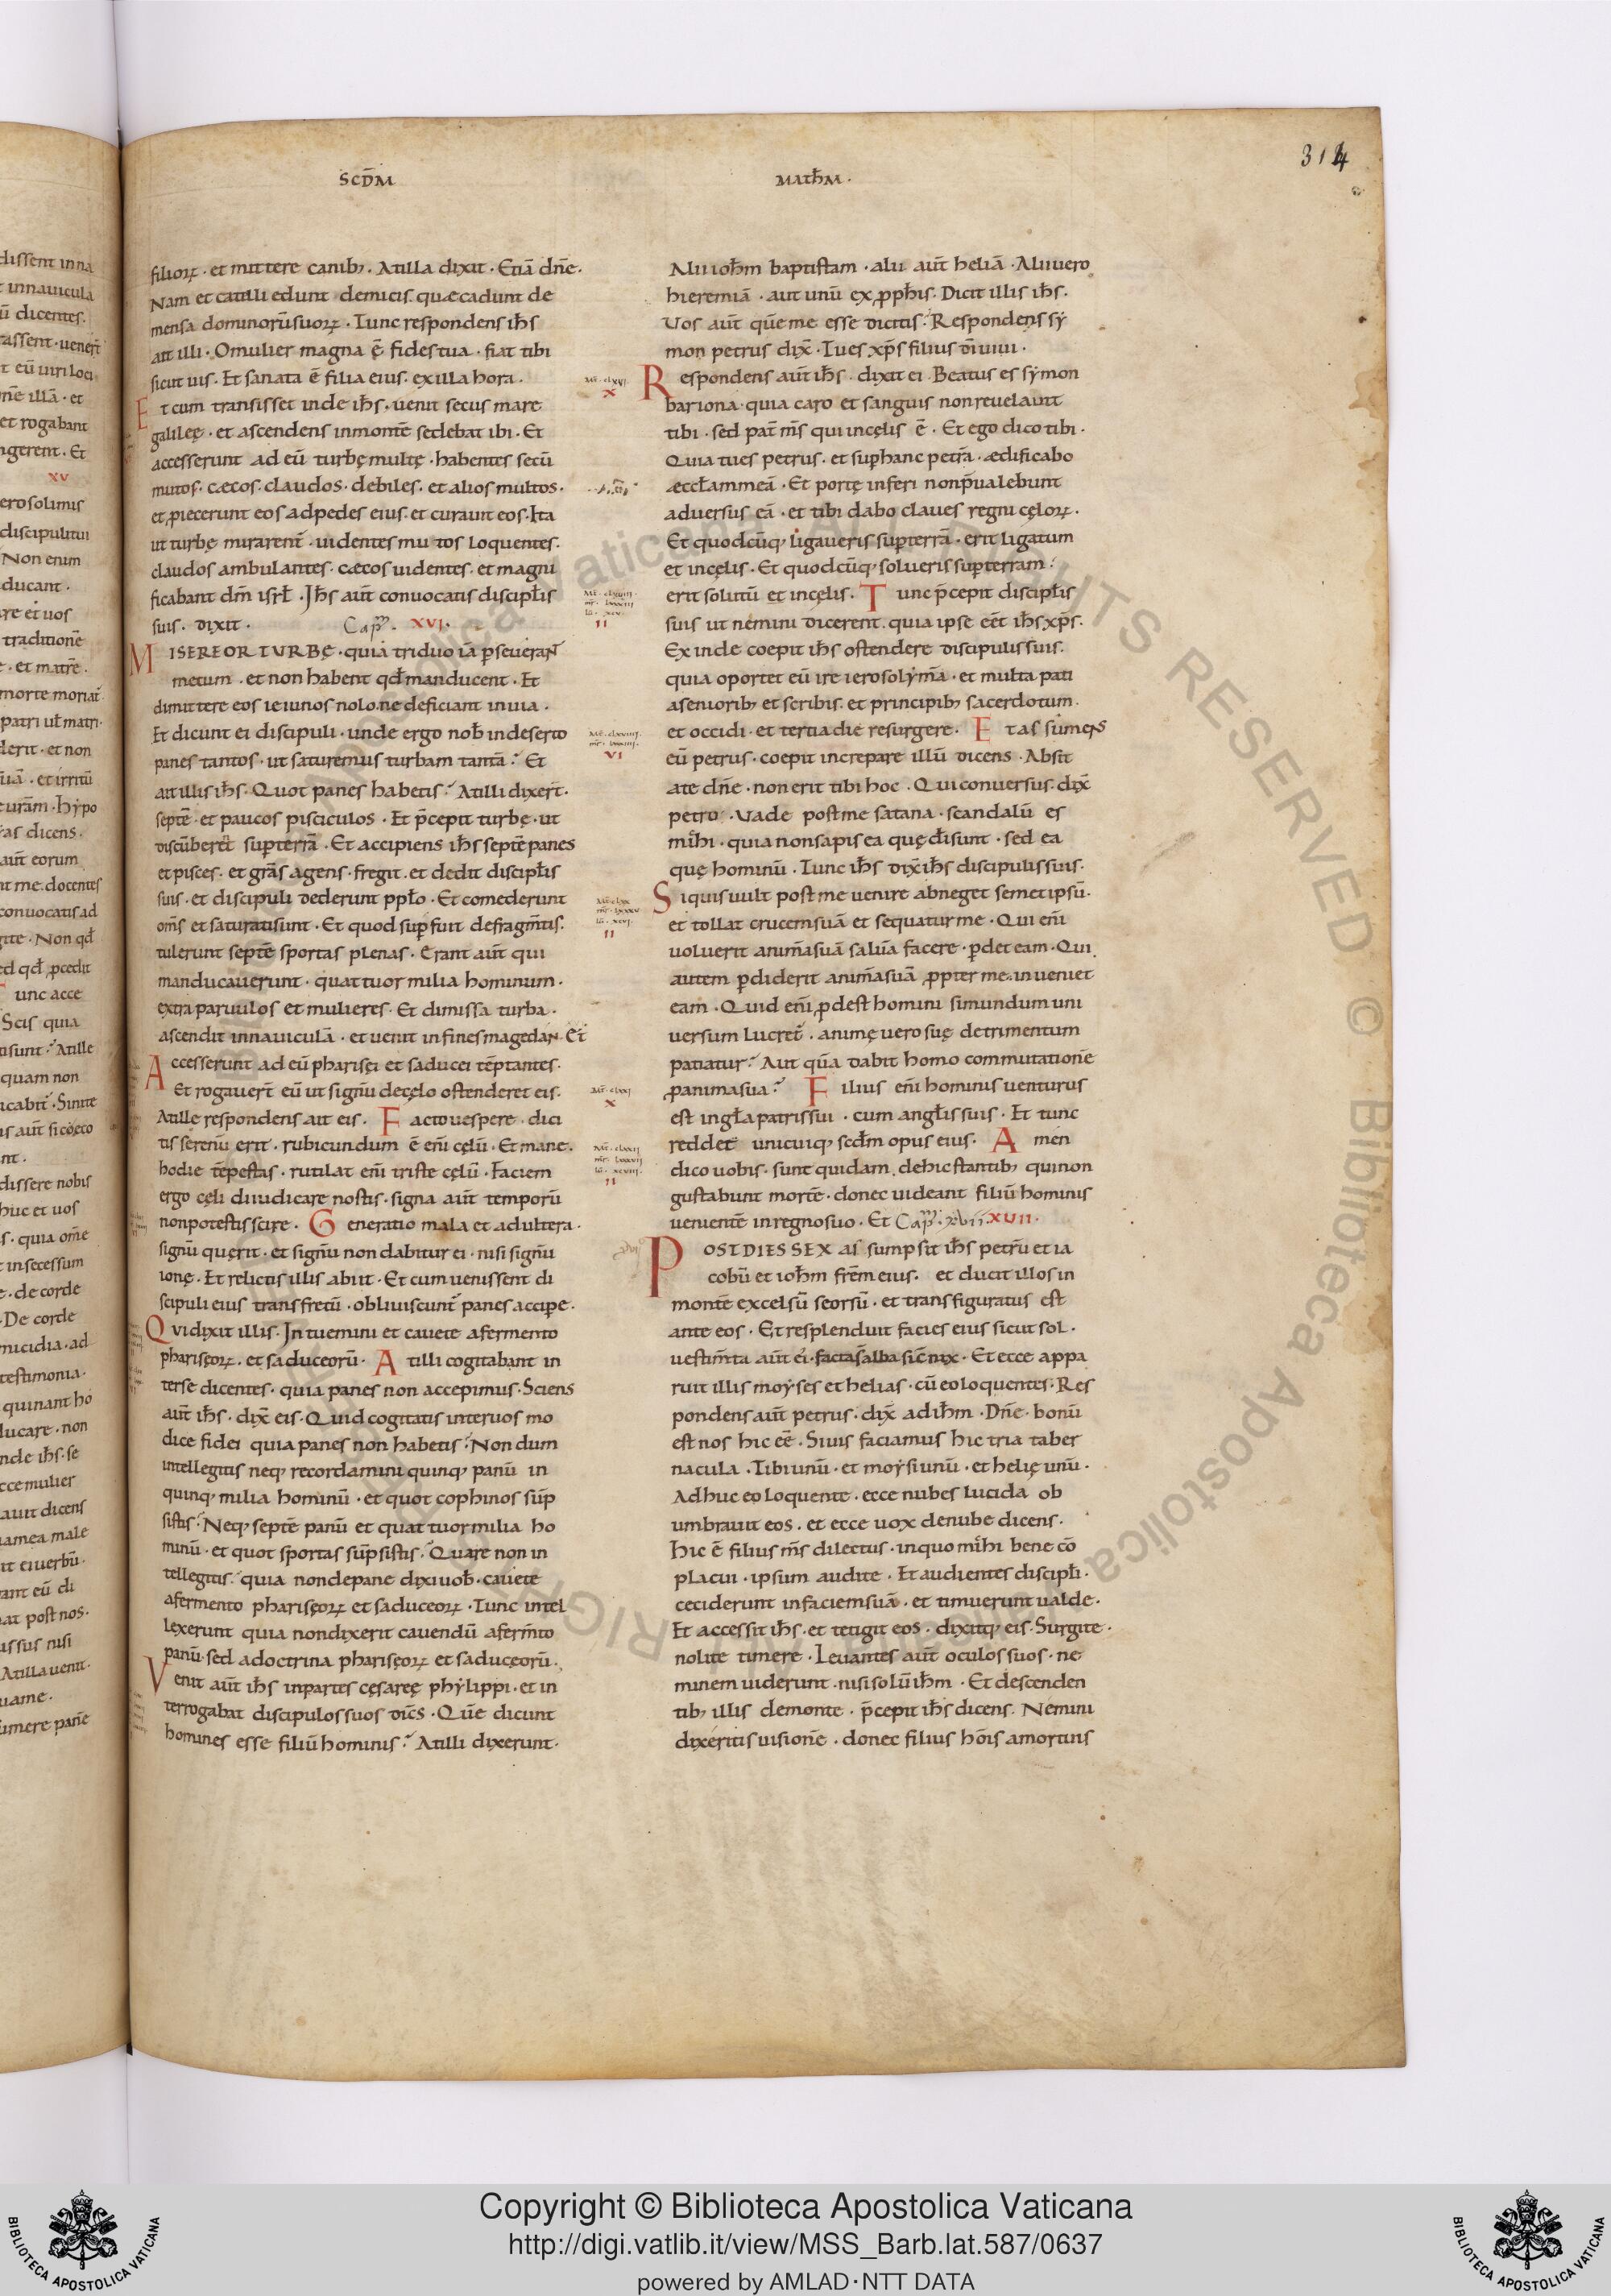 SCDM
MATHM.
314
filiorꝝ · et mittere canibꝫ. Atilla dixit · Etiā dn̄e ·
Nam et catelli edunt demicis quæ cadunt de
mensa dominorū suorꝝ · Tunc respondens ih̄s
ait illi · O mulier magna ē fides tua · fiat tibi
sicut uis · Et sanata ē filia eius · ex illa hora ·
Et cum transisset inde ih̄s · uenit secus mare
galileę · et ascendens in montē sedebat ibi · Et
accesserunt ad eū turbę multę · habentes secū
mutos · cæcos · claudos · debiles · et alios multos ·
et ꝓiecerunt eos ad pedes eius · et curauit eos · Ita
ut turbę mirarent̄ · uidentes mutos loquentes ·
claudos ambulantes · cæcos uidentes · et magni
ficabant dm̄ isrł · Jh̄s aut̄ conuocatis discipłis
suis · dixit · Cap̄ · XVI ·
MISEREOR TURBĘ · quia triduo iā ꝑseuerant
mecum · et non habent qđ manducent · Et
dimittere eos ieiunos nolo · ne deficiant in uia ·
Et dicunt ei discipuli · unde ergo nob̄ in deserto
panes tantos · ut saturemus turbam tantā? Et
ait illis ih̄s · Quot panes habetis? Atilli dixer̄t ·
septē · et paucos pisciculos · Et p̄cepit turbę · ut
discūberet sup terrā · Et accipiens ih̄s septē panes
et pisces · et grās agens · fregit · et dedit discipłis
suis · et discipuli dederunt ppło · Et comederunt
om̄s et saturati sunt · Et quod supfuit de fragm̄tis ·
tulerunt septē sportas plenas · Erant aut̄ qui
manducauerunt · quattuor milia hominum ·
extra paruulos et mulieres · Et dimissa turba ·
ascendit in nauiculā · et uenit in fines magedan · Et
Accesserunt ad eū pharisęi et saducei tēptantes ·
Et rogauer̄t eū ut signū de cęlo ostenderet eis ·
Atille respondens ait eis · Facto uespere · dici
tis serenū erit · rubicundum ē eni̅ cęlū · Et mane ·
hodie tēpestas · rutilat eni̅ triste cęlū · Faciem
ergo cęli diiudicare nostis · signa aut̄ temporū
non potestis scire · Generatio mala et adultera ·
signū quęrit · et signū non dabitur ei · nisi signū
ionę · Et relictis illis abiit · Et cum uenissent di
scipuli eius trans fretū · obliuiscunt̄ panes accipe ·
Qui dixit illis · Intuemini et cauete a fermento
pharisęorꝝ · et saduceorū · Atilli cogitabant in
ter se dicentes · quia panes non accepimus · Sciens
aut̄ ih̄s · dix̄ eis · Quid cogitatis inter uos mo
dice fidei quia panes non habetis? Nondum
intellegitis neqꝫ recordamini quinqꝫ panū in
quinqꝫ milia hominū · et quot cophinos sūp
sistis? Neqꝫ septē panū et quattuor milia ho
minū · et quot sportas sūpsistis? Quare non in
tellegitis · quia non de pane dixi uob̄ · cauete
a fermento pharisęorꝝ et saduceorꝝ · Tunc intel
lexerunt quia non dixerit cauendū a ferm̄to
panū · sed a doctrina pharisęorꝝ et saducęorū ·
Venit aut̄ ih̄s in partes cęsareę phylippi · et in
terrogabat discipulos suos dic̄s · Quē dicunt
homines esse filiū hominis? Atilli dixerunt ·
Alii ioh̄m baptistam · alii aut̄ heliā · Alii uero
hieremiā · aut unū ex ꝓph̄is · Dicit illis ih̄s ·
Uos aut̄ quē me esse dicitis? Respondens sy
mon petrus dix̄ · Tu es xp̄s filius dī uiui ·
Respondens aut̄ ih̄s · dixit ei · Beatus es symon
bariona · quia caro et sanguis non reuelauit
tibi · sed pat̄ m̄s qui in cęlis ē · Et ego dico tibi ·
Quia tu es petrus · et sup hanc petrā · ædificabo
æccłam meā · Et portę inferi non p̄ualebunt
aduersus eā · et tibi dabo claues regni cęlorꝝ ·
Et quodcūqꝫ ligaueris sup terrā · erit ligatum
et in cęlis · Et quodcūqꝫ solueris sup terram ·
erit solutū et in cęlis · Tunc p̄cepit discipłis
suis ut nemini dicerent · quia ipse eēt ih̄s xp̄s ·
Ex inde coepit ih̄s ostendere discipulis suis ·
quia oportet eū ire ierosolymā · et multa pati
a senioribꝫ et scribis · et principibꝫ sacerdotum ·
et occidi · et tertia die resurgere · Et assumens
eū petrus · coepit increpare illū dicens · Absit
a te dn̄e · non erit tibi hoc · Qui conuersus · dix̄
petro · Vade post me satana · scandalū es
mihi · quia non sapis ea quę dī sunt · sed ea
quę hominū · Tunc ih̄s dix̄ ih̄s discipulis suis ·
Si quis uult post me uenire abneget semetipsū ·
et tollat crucem suā et sequatur me · Qui eni̅
uoluerit anim̄a suā saluā facere · ꝑdet eam · Qui
autem ꝑdiderit anim̄a suā ꝓpter me · inueniet
eam · Quid eni̅ ꝓdest homini si mundum uni
uersum lucret̄ · animę uero suę detrimentum
patiatur? Aut quā dabit homo commutationē
ꝓ anima sua? Filius eni̅ hominis uenturus
est in głā patris sui · cum angłis suis · Et tunc
reddet unicuiqꝫ scdm̄ opus eius · Amen
dico uobis · sunt quidam de hic stantibꝫ qui non
gustabunt mortē · donec uideant filiū hominis
uenientē in regno suo · Et Cap̄ · xvii · XVII ·
POST DIES SEX assumpsit ih̄s petrū et ia
cobū et ioh̄m frēm eius · et ducit illos in
montē excelsū seorsū · et transfiguratus est
ante eos · Et resplenduit facies eius sicut sol ·
uestim̄ta aut̄ ei · facta s̄ alba sic̄ nix · Et ecce appa
ruit illis moyses et helias · cū eo loquentes · Res
pondens aut̄ petrus · dix̄ ad ih̄m · Dn̄e · bonū
est nos hic eē · Si uis faciamus hic tria taber
nacula · Tibi unū · et moysi unū · et helię unū ·
Adhuc eo loquente · ecce nubes lucida ob
umbrauit eos · et ecce uox de nube dicens ·
Hic ē filius m̄s dilectus · in quo mihi bene cō
placui · ipsum audite · Et audientes discipłi ·
ceciderunt in faciem suā · et timuerunt ualde ·
Et accessit ih̄s · et tetigit eos · dixitqꝫ eis · Surgite ·
nolite timere · Leuantes aut̄ oculos suos · ne
minem uiderunt · nisi solū ih̄m · Et descenden
tibꝫ illis de monte · p̄cepit ih̄s dicens · Nemini
dixeritis uisionē · donec filius hōis a mortuis
Copyright © Biblioteca Apostolica Vaticana
http://digi.vatlib.it/view/MSS_Barb.lat.587/0637
powered by AMLAD·NTT DATA